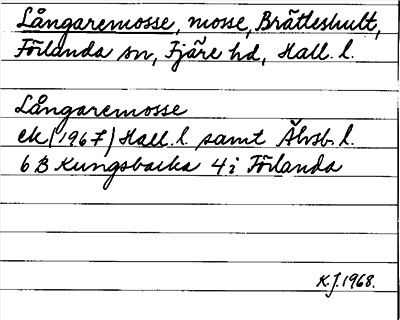 Långaremosse, mosse, Brättleshult,
Förlanda sn, Fjäre hd, Hall. l.
Långaremosse
ek (1967) Hall. l. samt Älvsb. l.
6 B Kungsbacka 4 i Förlanda
K.J. 1968.